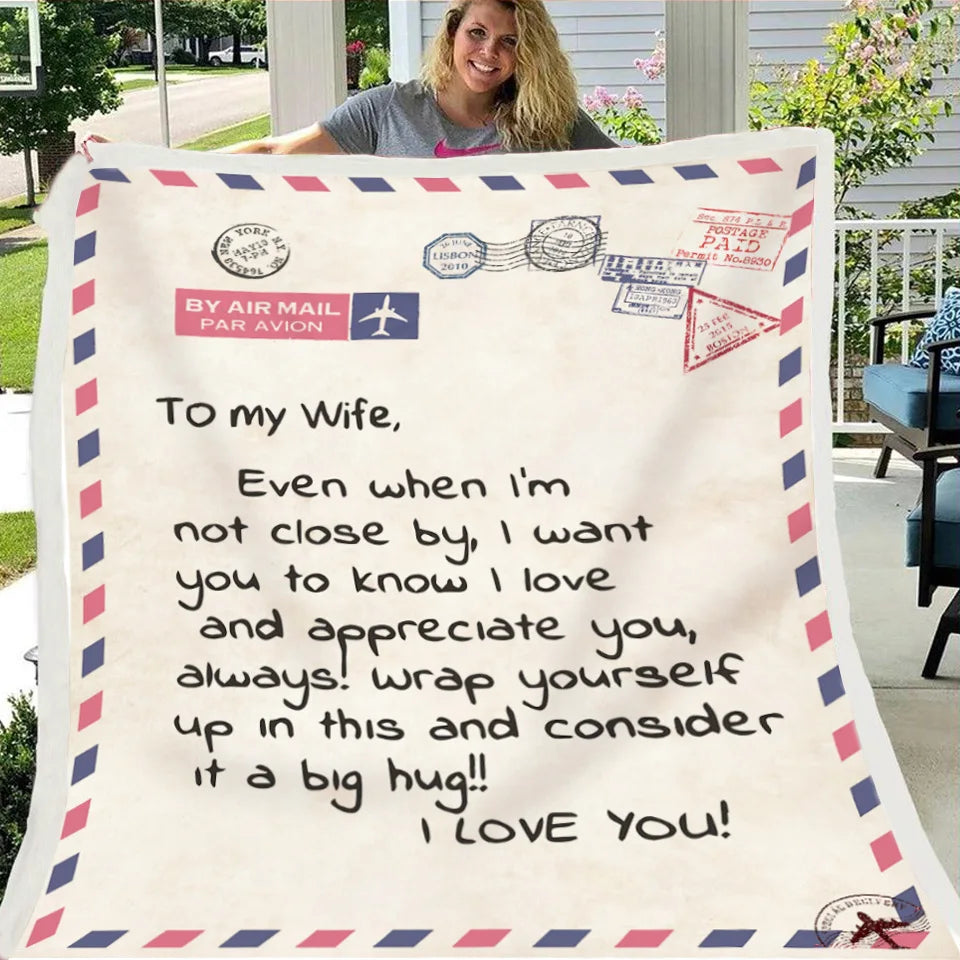 NEW YORK N.Y.
MAY 19
7-PM
LISBON
2010
BY AIR MAIL
PAR AVION
POSTAGE
PAID
Permit No.8930
HONG KONG
23 FEB
2015
BOSTON
To my Wife,
Even when I'm
not close by, I want
you to know I love
and appreciate you,
always! wrap yourself
up in this and consider
it a big hug!!
I LOVE YOU!
SPECIAL DELIVERY